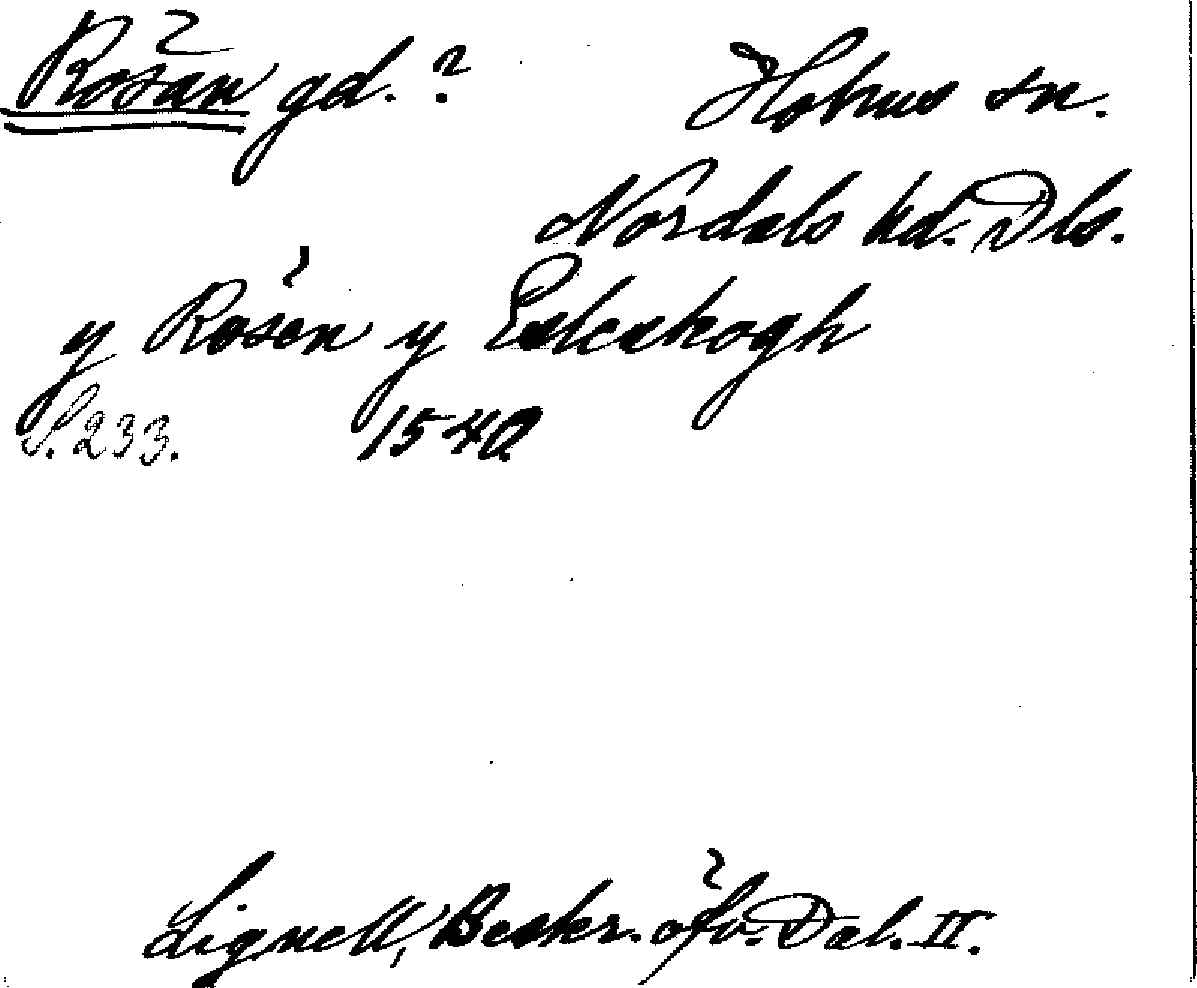 Rösan gd.? Holms sn.
Nordals hd. Dls.
y Rösen y Eskeskogh
S. 233. 1540.
Lignell, Beskr. öfv. Dal. II.